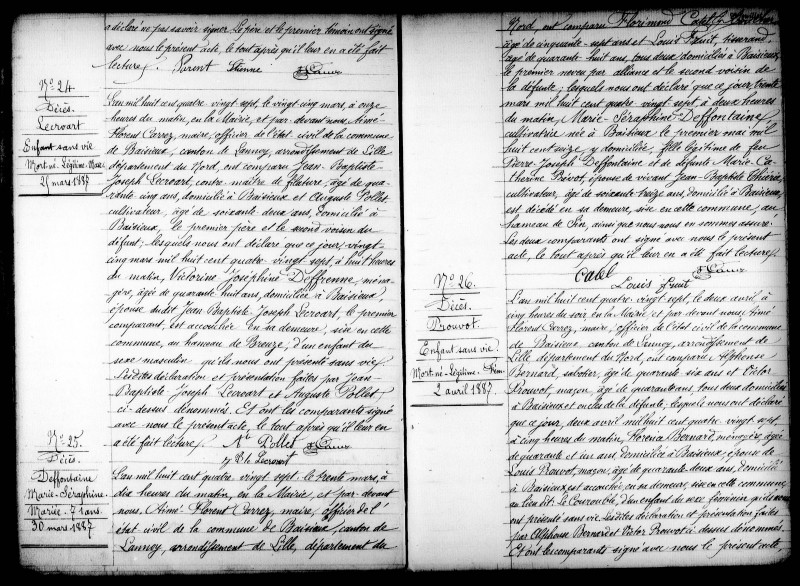 a déclaré ne pas savoir signer. Le père et le premier témoin ont signé
avec nous le présent acte, le tout après qu'il leur en a été fait
lecture. Parent Etienne
N° 24
Décès.
Lecroart
Enfant sans vie
Mort-né-Légitime-Masc
25 mars 1887
L'an mil huit cent quatre-vingt-sept, le vingt cinq mars, à onze
heures du matin, en la Mairie, et par-devant nous Aimé
Florent Correz, maire, officier de l'état civil de la commune
de Baisieux, canton de Lannoy, arrondissement de Lille
département du Nord, ont comparu Jean-Baptiste-
Joseph Lecroart, contre-maître de filature, âgé de qua-
rante cinq ans, domicilié à Baisieux et Auguste Pollet
cultivateur, âgé de soixante-deux ans, domicilié à
Baisieux, le premier père et le second voisin du
défunt; lesquels nous ont déclaré que ce jour, vingt-
cinq mars mil huit cent quatre vingt sept, à huit heures
du matin, Victorine Joséphine Deffrenne, ména-
gère, âgée de quarante-huit ans, domiciliée à Baisieux,
épouse dudit Jean Baptiste Joseph Lecroart, le premier
comparant, est accouchée en sa demeure, sise en cette
commune, au hameau de Breuze, d'un enfant du
sexe masculin qu'ils nous ont présenté sans vie
Lesdites déclaration et présentation faites par Jean-
Baptiste Joseph Lecroart et Auguste Pollet
ci-dessus dénommés. Et ont les comparants signé
avec nous le présent acte, le tout après qu'il leur en
a été fait lecture. Pollet
Lecroart
N° 25
Décès.
Deffontaine
Marie-Séraphine
Mariée-71 ans
30 mars 1887
L'an mil huit cent quatre vingt sept le trente mars, à
dix heures du matin, en la Mairie, et par-devant
nous Aimé Florent Correz, maire, officier de l'
état civil de la commune de Baisieux, canton de
Lannoy, arrondissement de Lille, département du
Nord, ont comparu Florimond Catel
âgé de cinquante-sept ans et Louis Fruit, tisserand
âgé de quarante huit ans, tous deux domiciliés à Baisieux
le premier neveu par alliance et le second voisin de
la défunte, lesquels nous ont déclaré que ce jour, trente
mars mil huit cent quatre vingt sept à deux heures
du matin, Marie-Séraphine Deffontaine,
cultivatrice née à Baisieux le premier mai mil
huit cent seize, y domiciliée, fille légitime de feu
Pierre-Joseph Deffontaine et de défunte Marie-Ca-
therine Prévot, épouse de vivant Jean-Baptiste
cultivateur, âgé de soixante-treize ans, domicilié à Baisieux
est décédée en sa demeure, sise en cette commune, au
hameau de Sin, ainsi que nous en sommes assuré.
Les deux comparants ont signé avec nous le présent
acte, le tout après qu'il leur en a été fait lecture.
Catel
Louis Fruit
N° 26.
Décès.
Prouvot.
Enfant sans vie.
Mort-né-Légitime-Fém
2 avril 1887
L'an mil huit cent quatre-vingt-sept, le deux avril à
cinq heures du soir, en la Mairie, et par-devant nous Aimé
Florent Correz, maire, officier de l'état civil de la commune
de Baisieux canton de Lannoy, arrondissement de
Lille département du Nord, ont comparu Alphonse
Bernard, sabotier, âgé de quarante six ans et Victor
Prouvot, maçon, âgé de quarante ans, tous deux domiciliés
à Baisieux et oncles de la défunte, lesquels nous ont déclaré
que ce jour, deux avril mil huit cent quatre vingt sept,
à cinq heures du matin, Florena Bernard, ménagère, âgée
de quarante et un ans, domiciliée à Baisieux, épouse de
Louis Prouvot, maçon, âgé de quarante deux ans, domicilié
à Baisieux est accouchée, en sa demeure, sise en cette commune
au lieu dit: Le Courouble, d'un enfant du sexe féminin qu'ils nous
ont présenté sans vie. Lesdites déclaration et présentation faites
par Alphonse Bernard et Victor Prouvot ci-dessus dénommés.
Et ont les comparants signé avec nous le présent acte,